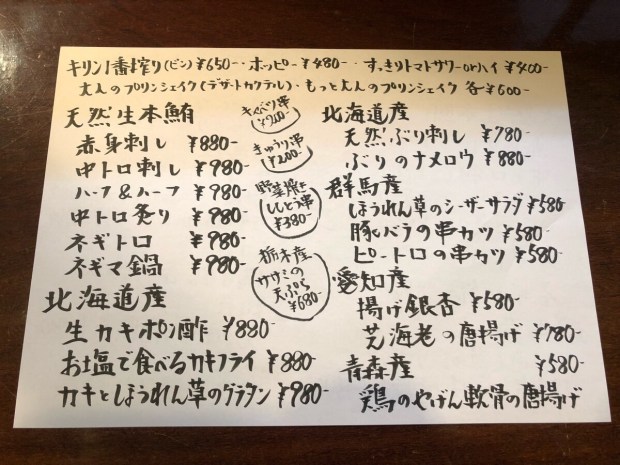 キリン1番搾り(ビン)¥650-・ホッピー¥480-・すっきりトマトサワーorハイ¥400-
大人のプリンシェイク(デザートカクテル)・もっと大人のプリンシェイク 各¥600-
天然生本鮪
赤身刺し ¥880-
中トロ刺し ¥980-
ハーフ&ハーフ ¥980-
中トロ炙り ¥980-
ネギトロ ¥980-
ネギマ鍋 ¥980-
北海道産
生カキポン酢 ¥880-
お塩で食べるカキフライ ¥880-
カキとほうれん草のグラタン ¥980-
キャベツ串
¥200-
きゅうり串
¥200-
野菜焼き
ししとう串
¥380-
栃木産
ササミの
天ぷら
¥680-
北海道産
天然ぶり刺し ¥780-
ぶりのナメロウ ¥880-
群馬産
ほうれん草のシーザーサラダ ¥580-
豚バラの串カツ ¥580-
ピートロの串カツ ¥580-
愛知産
揚げ銀杏 ¥580-
芝海老の唐揚げ ¥780-
青森産 ¥580-
鶏のやげん軟骨の唐揚げ